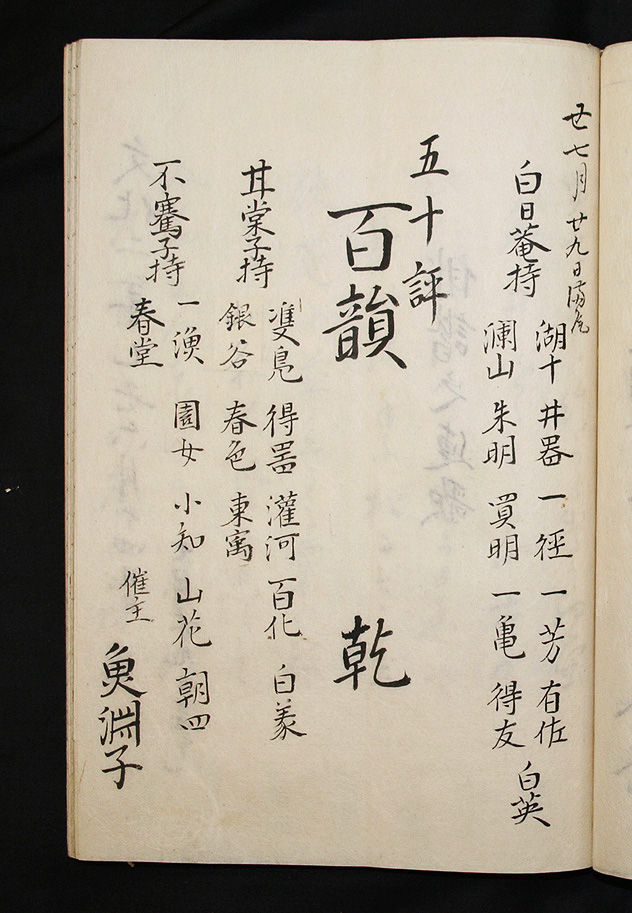 廿七月廿九日満尾
白日菴持
湖十 井器 一徑 一芳 有佐
瀾山 朱明 買明 一亀 得友 白英
五十評
百韻 乾
甘棠子持
雙鳬 得器 灌河 百化 白羲
銀谷 春色 東寓
不騫子持
一漁 園女 小知 山花 朝四
春堂
催主
魚淵子